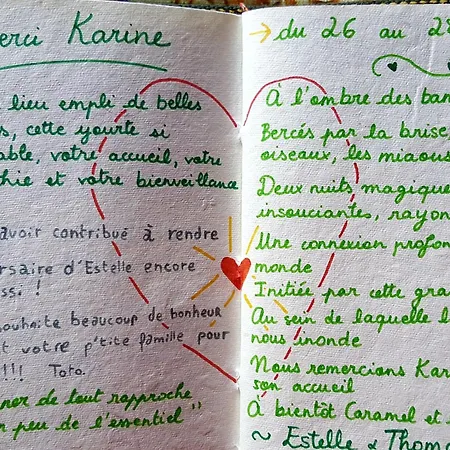 erci Karine
lieu empli de belles
s, cette yourte si
able, votre accueil, votre
hie et votre bienveillance
avoir contribué à rendre
rsaire d'Estelle encore
ss. !
souhaite beaucoup de bonheur
t votre p'tite famille pour
!!! Toto.
ner de tout rapproche
r peu de l'essentiel "
→ du 26 au 28
À l'ombre des bam
Bercés par la brise,
oiseaux, les miaous
Deux nuits magique
insouciantes, rayon
Une connexion profon
monde
Initiée par cette gra
Au sein de laquelle l
nous inonde
Nous remercions Kar
son accueil
À bientôt Caramel et
~ Estelle & Thom